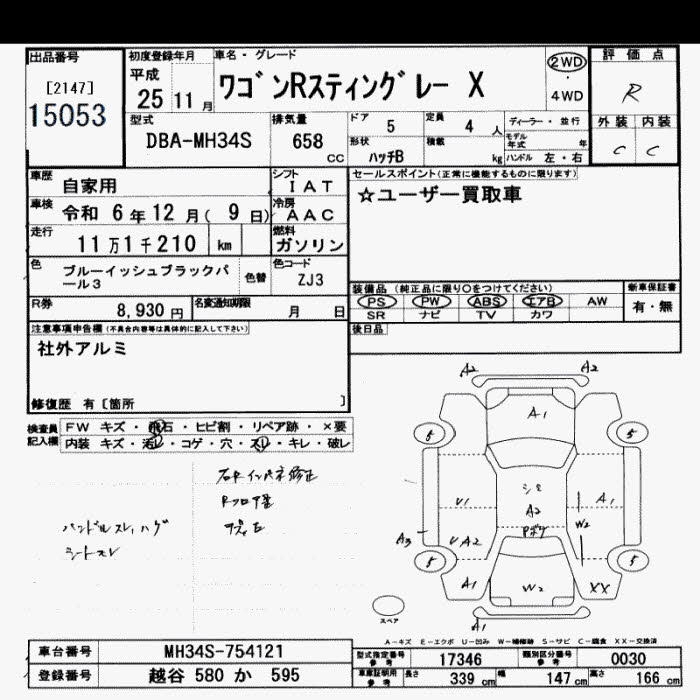 出品番号
[2147]
15053
初度登録年月
平成
25 11 月
車名・グレード
ワゴンRスティングレー X
2WD
・
4WD
評価点
R
外装 内装
C C
型式
DBA-MH34S
排気量
658
CC
ドア
5
定員
4 人
形状
ハッチB
積載
kg
ディーラー・並行
モデル年式 年
ハンドル 左・右
車歴
自家用
シフト
IAT
車検
令和 6 年 12 月( 9 日)
冷房
AAC
走行
11 万 1 千 210 km
燃料
ガソリン
色
ブルーイッシュブラックパール3
色替
色コード
ZJ3
R券
8,930 円
名変通知期限
月 日
セールスポイント(正常に機能するものに限ります)
☆ユーザー買取車
装備品 (純正品に限り○をつけてください)
新車保証書
PS PW ABS エアB AW
SR ナビ TV カワ
有・無
後日品
注意事項申告欄(不具合内容等は具体的に記入して下さい)
社外アルミ
修復歴 有 [箇所 ]
検査員記入欄
FW キズ・飛石・ヒビ割・リペア跡・×要
内装 キズ・汚レ・コゲ・穴・スレ・キレ・破レ
右Rインパネ修正
ハンドルスレ,ハゲ
シートスレ
A2 A2
A1
5 5
U1
A2
A1
W2
A3
U A2
5 5
A1
W2
XX
A1
スペア
A-キズ E-エクボ U-凹み W-補修跡 S-サビ C-腐食 XX-交換済
車台番号
MH34S-754121
登録番号
越谷 580 か 595
型式指定番号
参考
17346
類別区分番号
参考
0030
車庫証明用
参考
長さ
339 cm
幅
147 cm
高さ
166 cm